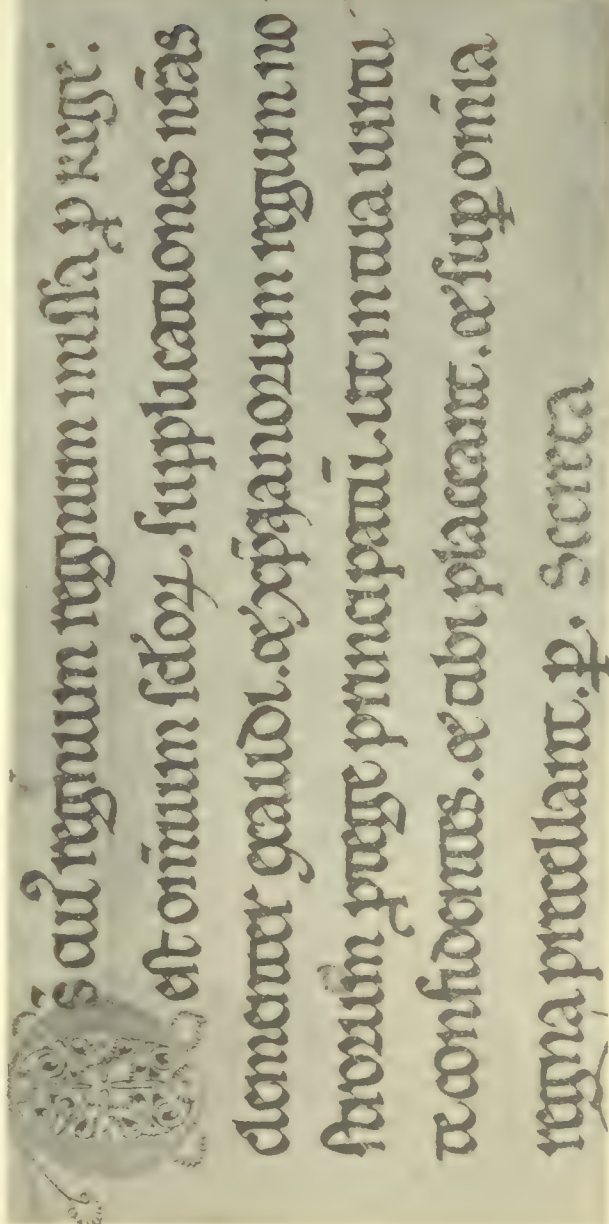 D̄s cui᾽ regnum regnum missa ꝑ rege:
est om̄ium sclōꝝ. supplicationes nr̄as
clementer exaudi. et xp̄ianorum regnum no
strorum ꝓtege principatū. ut in tua uirtu
te confidentes. et tibi placeant. et suꝑ om̄ia
regna precellant. ꝑ. Secreta